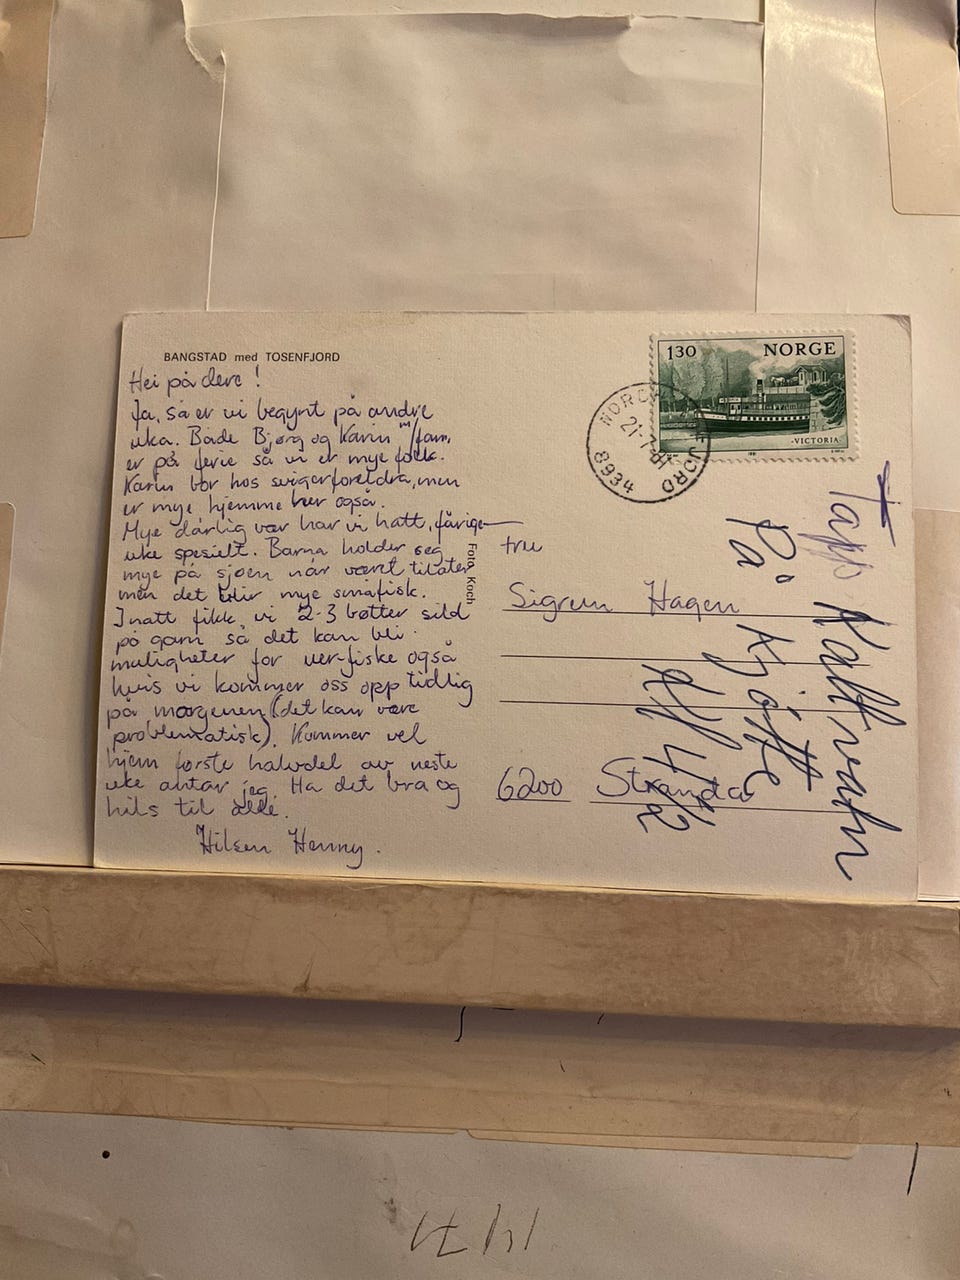 BANGSTAD med TOSENFJORD
Hei på dere !
Ja, så er vi begynt på andre
uka. Både Bjørg og Karin m/fam.
er på ferie så vi er mye folk.
Karin bor hos svigerforeldra, men
er mye hjemme her også.
Mye dårlig vær har vi hatt, førrige
uke spesielt. Barna holder seg
mye på sjøen når været tillater
men det blir mye småfisk.
I natt fikk vi 2-3 bøtter sild
på garn så det kan bli
muligheter for uer-fiske også
hvis vi kommer oss opp tidlig
på morgenen (det kan være
problematisk). Kommer vel
hjem første halvdel av neste
uke antar jeg. Ha det bra og
hils til alle.
Hilsen Henny.
Foto Koch
130 NORGE
-VICTORIA-
21-7-81
8934
FJORD
Fru
Sigrun Hagen
6200 Stranda
Tapp Kaltvatn
På Kjøtte